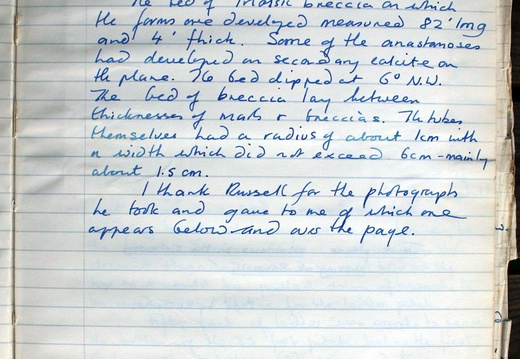 The bed of Triassic breccia on which
the forms are developed measured 82' long
and 4' thick. Some of the anastomoses
had developed on secondary calcite on
the plane. The bed dipped at 6° N.W.
The bed of breccia lay between
thicknesses of marls & breccias. The tubes
themselves had a radius of about 1cm with
a width which did not exceed 6cm - mainly
about 1.5 cm.
I thank Russell for the photographs
he took and gave to me of which one
appears below and over the page.